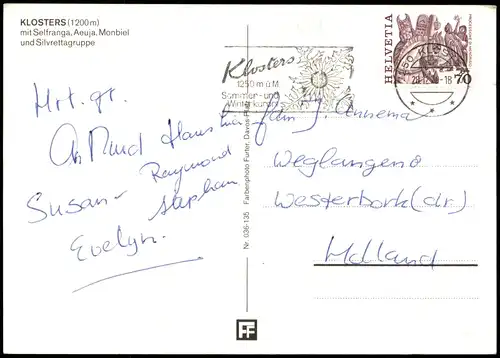 KLOSTERS (1200 m)
mit Selfranga, Aeuja, Monbiel
und Silvrettagruppe
Klosters
1250 m ü M
Sommer- und
Winterkurort
HELVETIA
70
Hrt. gr.
Raymond
Susan-
Stephan
Evelyn.
fam. J. Annema
Weglangend
Westerbork (dr.)
Holland
Nr. 036-135 Farbenphoto Furter, Davos-Platz